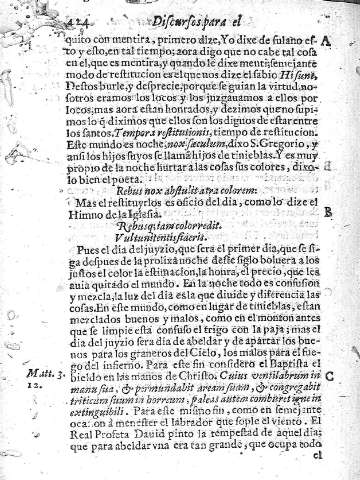 424 Discursos para el
quito con mentira, primero dize, Yo dixe de fulano es-
to y esto, en tal tiempo; aora digo que no cabe tal cosa
en el, que es mentira, y quando le dixe menti; semejante
modo de restitucion es el que nos dize el sabio Hi sunt,
Destos burle, y desprecie, porque se guian la virtud. no-
sotros eramos los locos y los juzgauamos a ellos por
locos, mas aora estan honrados, y dezimos que no supi-
mos lo q̃ diximos que ellos son los dignos de estar entre
los santos. Tempora restitutionis, tiempo de restitucion.
Este mundo es noche, nox sæculum, dixo S. Gregorio, y
ansi los hijos suyos se llamã hijos de tinieblas. Y es muy
propio de la noche hurtar a las cosas sus colores, dixo-
lo bien el poeta.
Rebus nox abstulit atra colorem:
Mas el restituyrlos es oficio del dia, como lo dize el
Himno de la Iglesia.
Rebusq; iam color redit.
Vultu nitentis sideris.
Pues el dia del juyzio, que sera el primer dia, que se si-
ga despues de la prolixa noche deste siglo boluera a los
justos el color la estimacion, la honra, el precio, que les
auia quitado el mundo. En la noche todo es confusion
y mezcla, la luz del dia es la que diuide y diferencia las
cosas. En este mundo, como en lugar de tinieblas, estan
mezclados buenos y malos, como en el monton antes
que se limpie està confuso el trigo con la paja; mas el
dia del juyzio sera dia de abeldar y de apartar los bue-
nos para los graneros del Cielo, los malos para el fue-
go del infierno. Para este fin considero el Baptista el
bieldo en las manos de Christo, Cuius ventilabrum in
manu sua, & permundabit aream suam, & congregabit
triticum suum in horreum, paleas autem comburet igne in
extinguibili. Para este mismo fin, como en semejante
ocasion à menester el labrador que sople el viento. El
Real Profeta Dauid pinto la tempestad de aquel dia;
que para abeldar vna era tan grande, que ocupa todo
el
A
B
Matt. 3.
12.
C